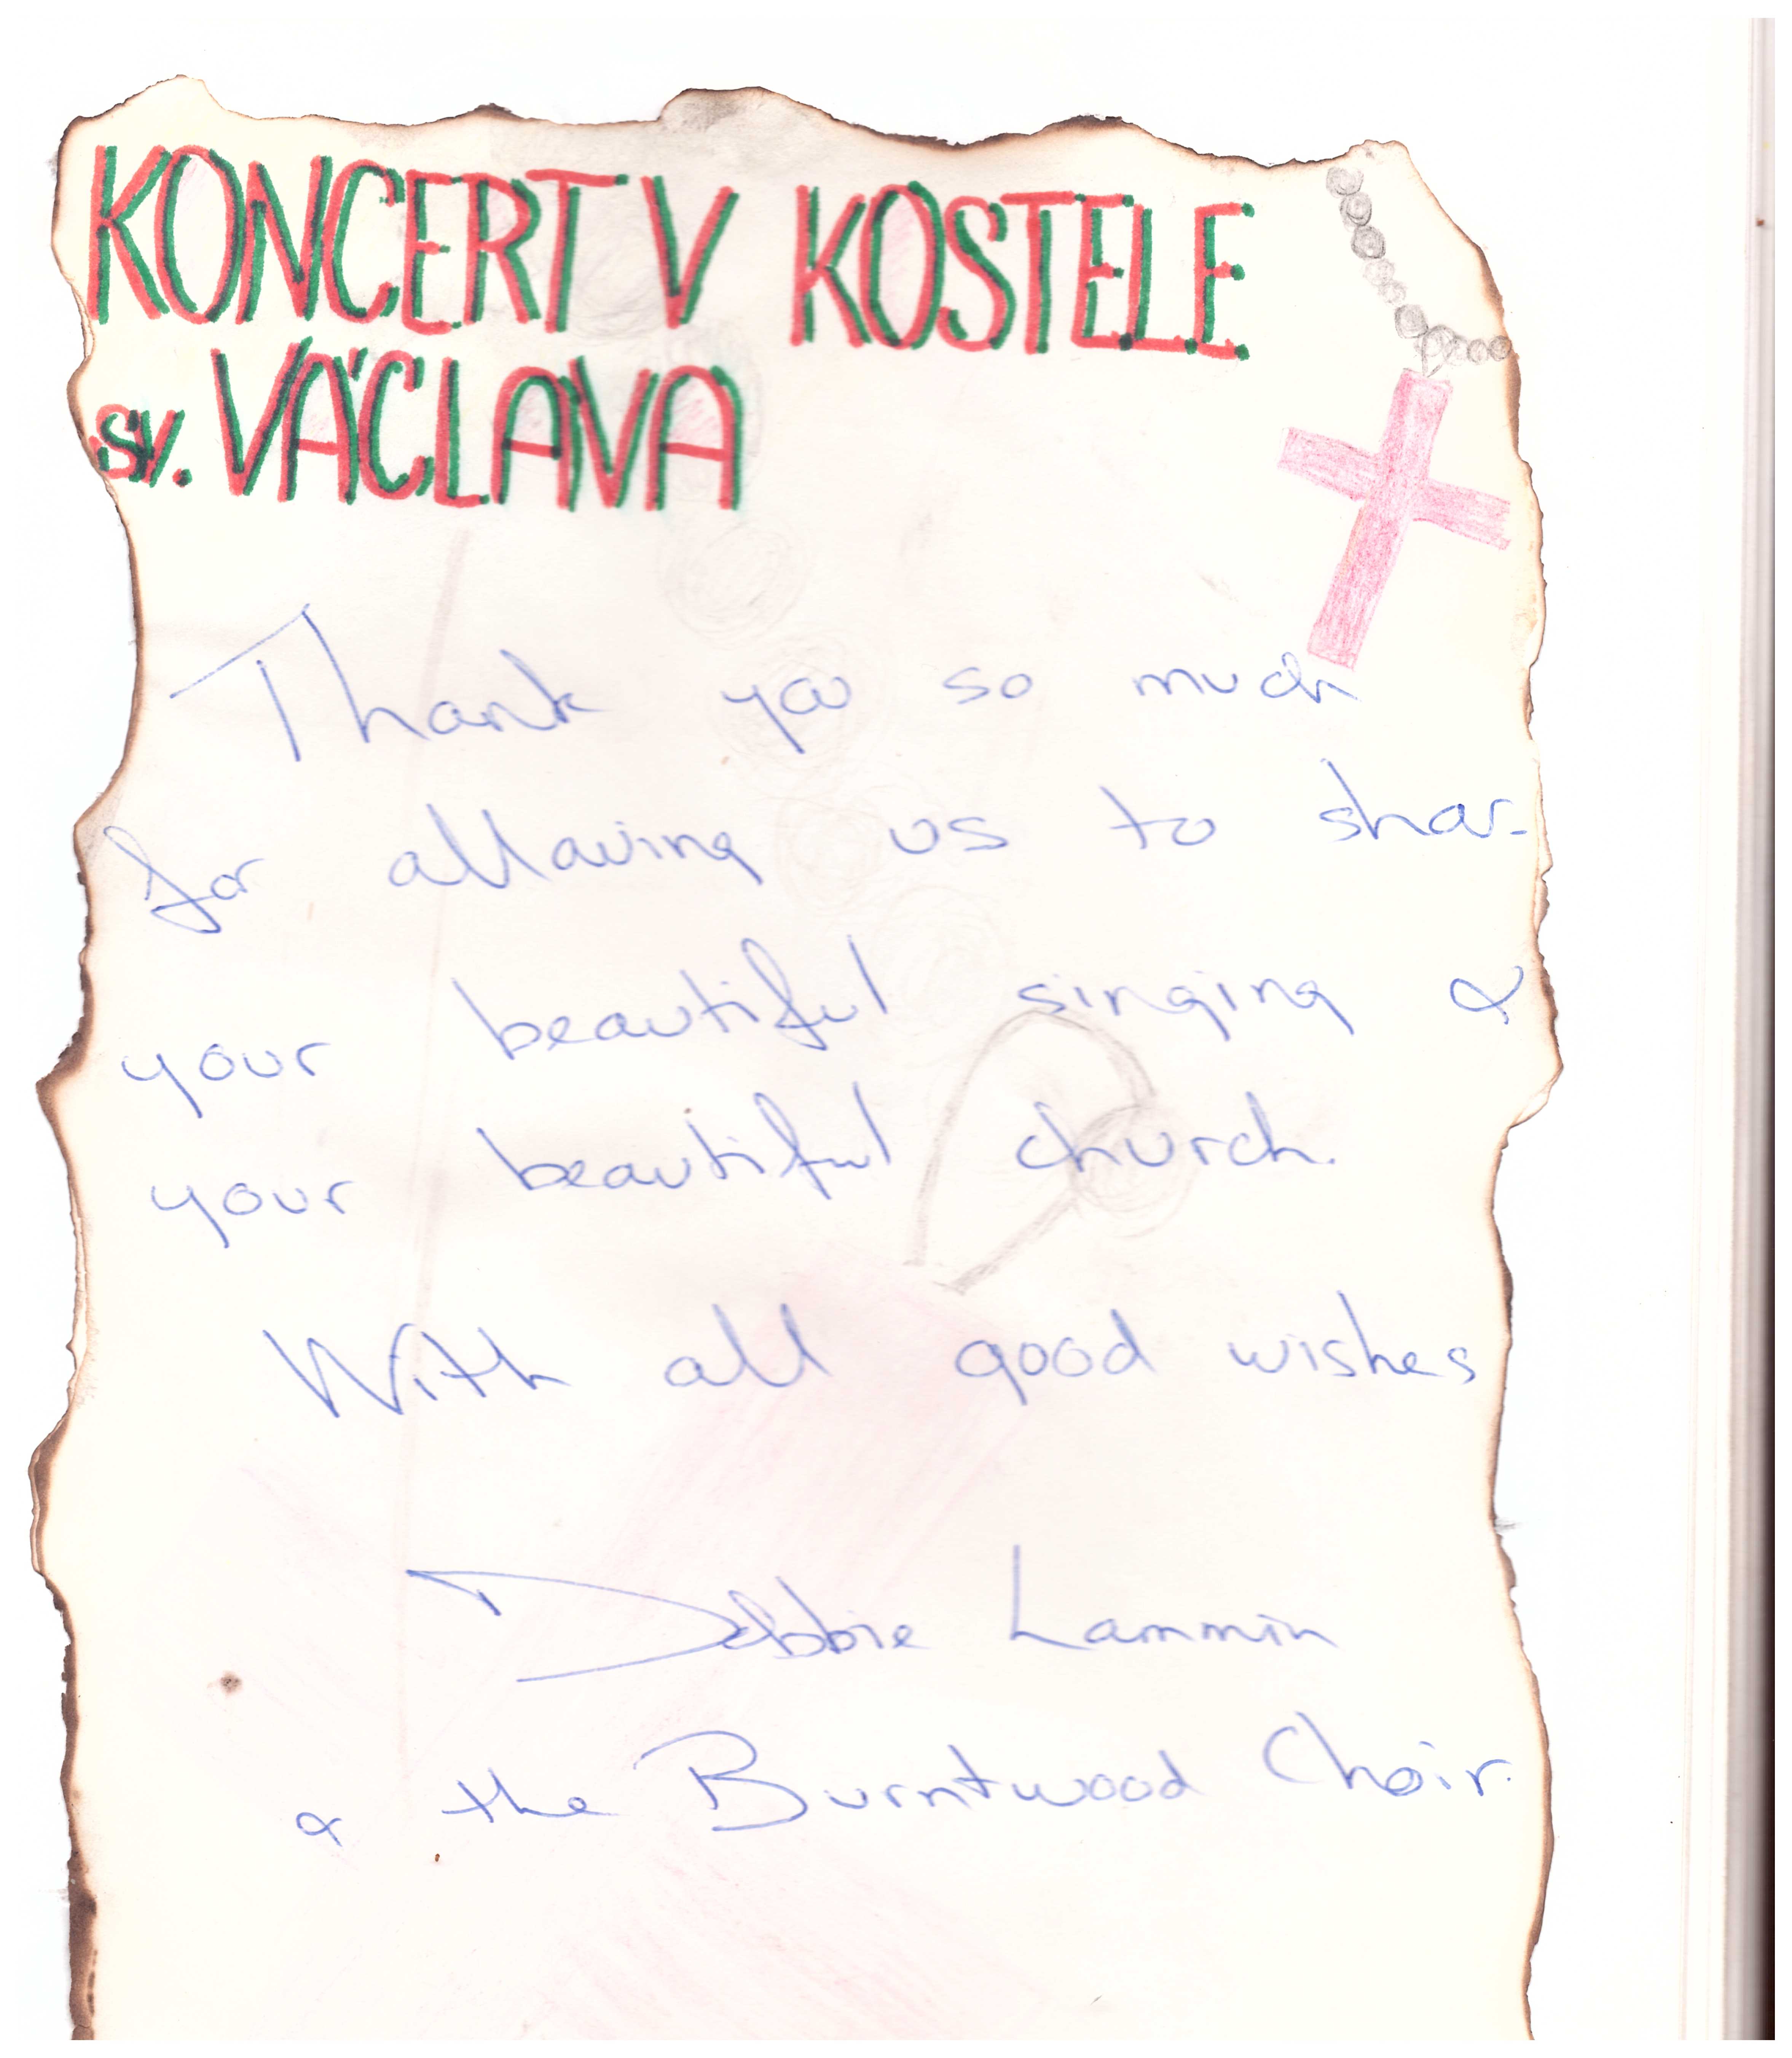 KONCERT V KOSTELE
sv. VÁCLAVA
Thank you so much
for allowing us to share
your beautiful singing &
your beautiful church.
With all good wishes
Debbie Lammin
& the Burntwood Choir.